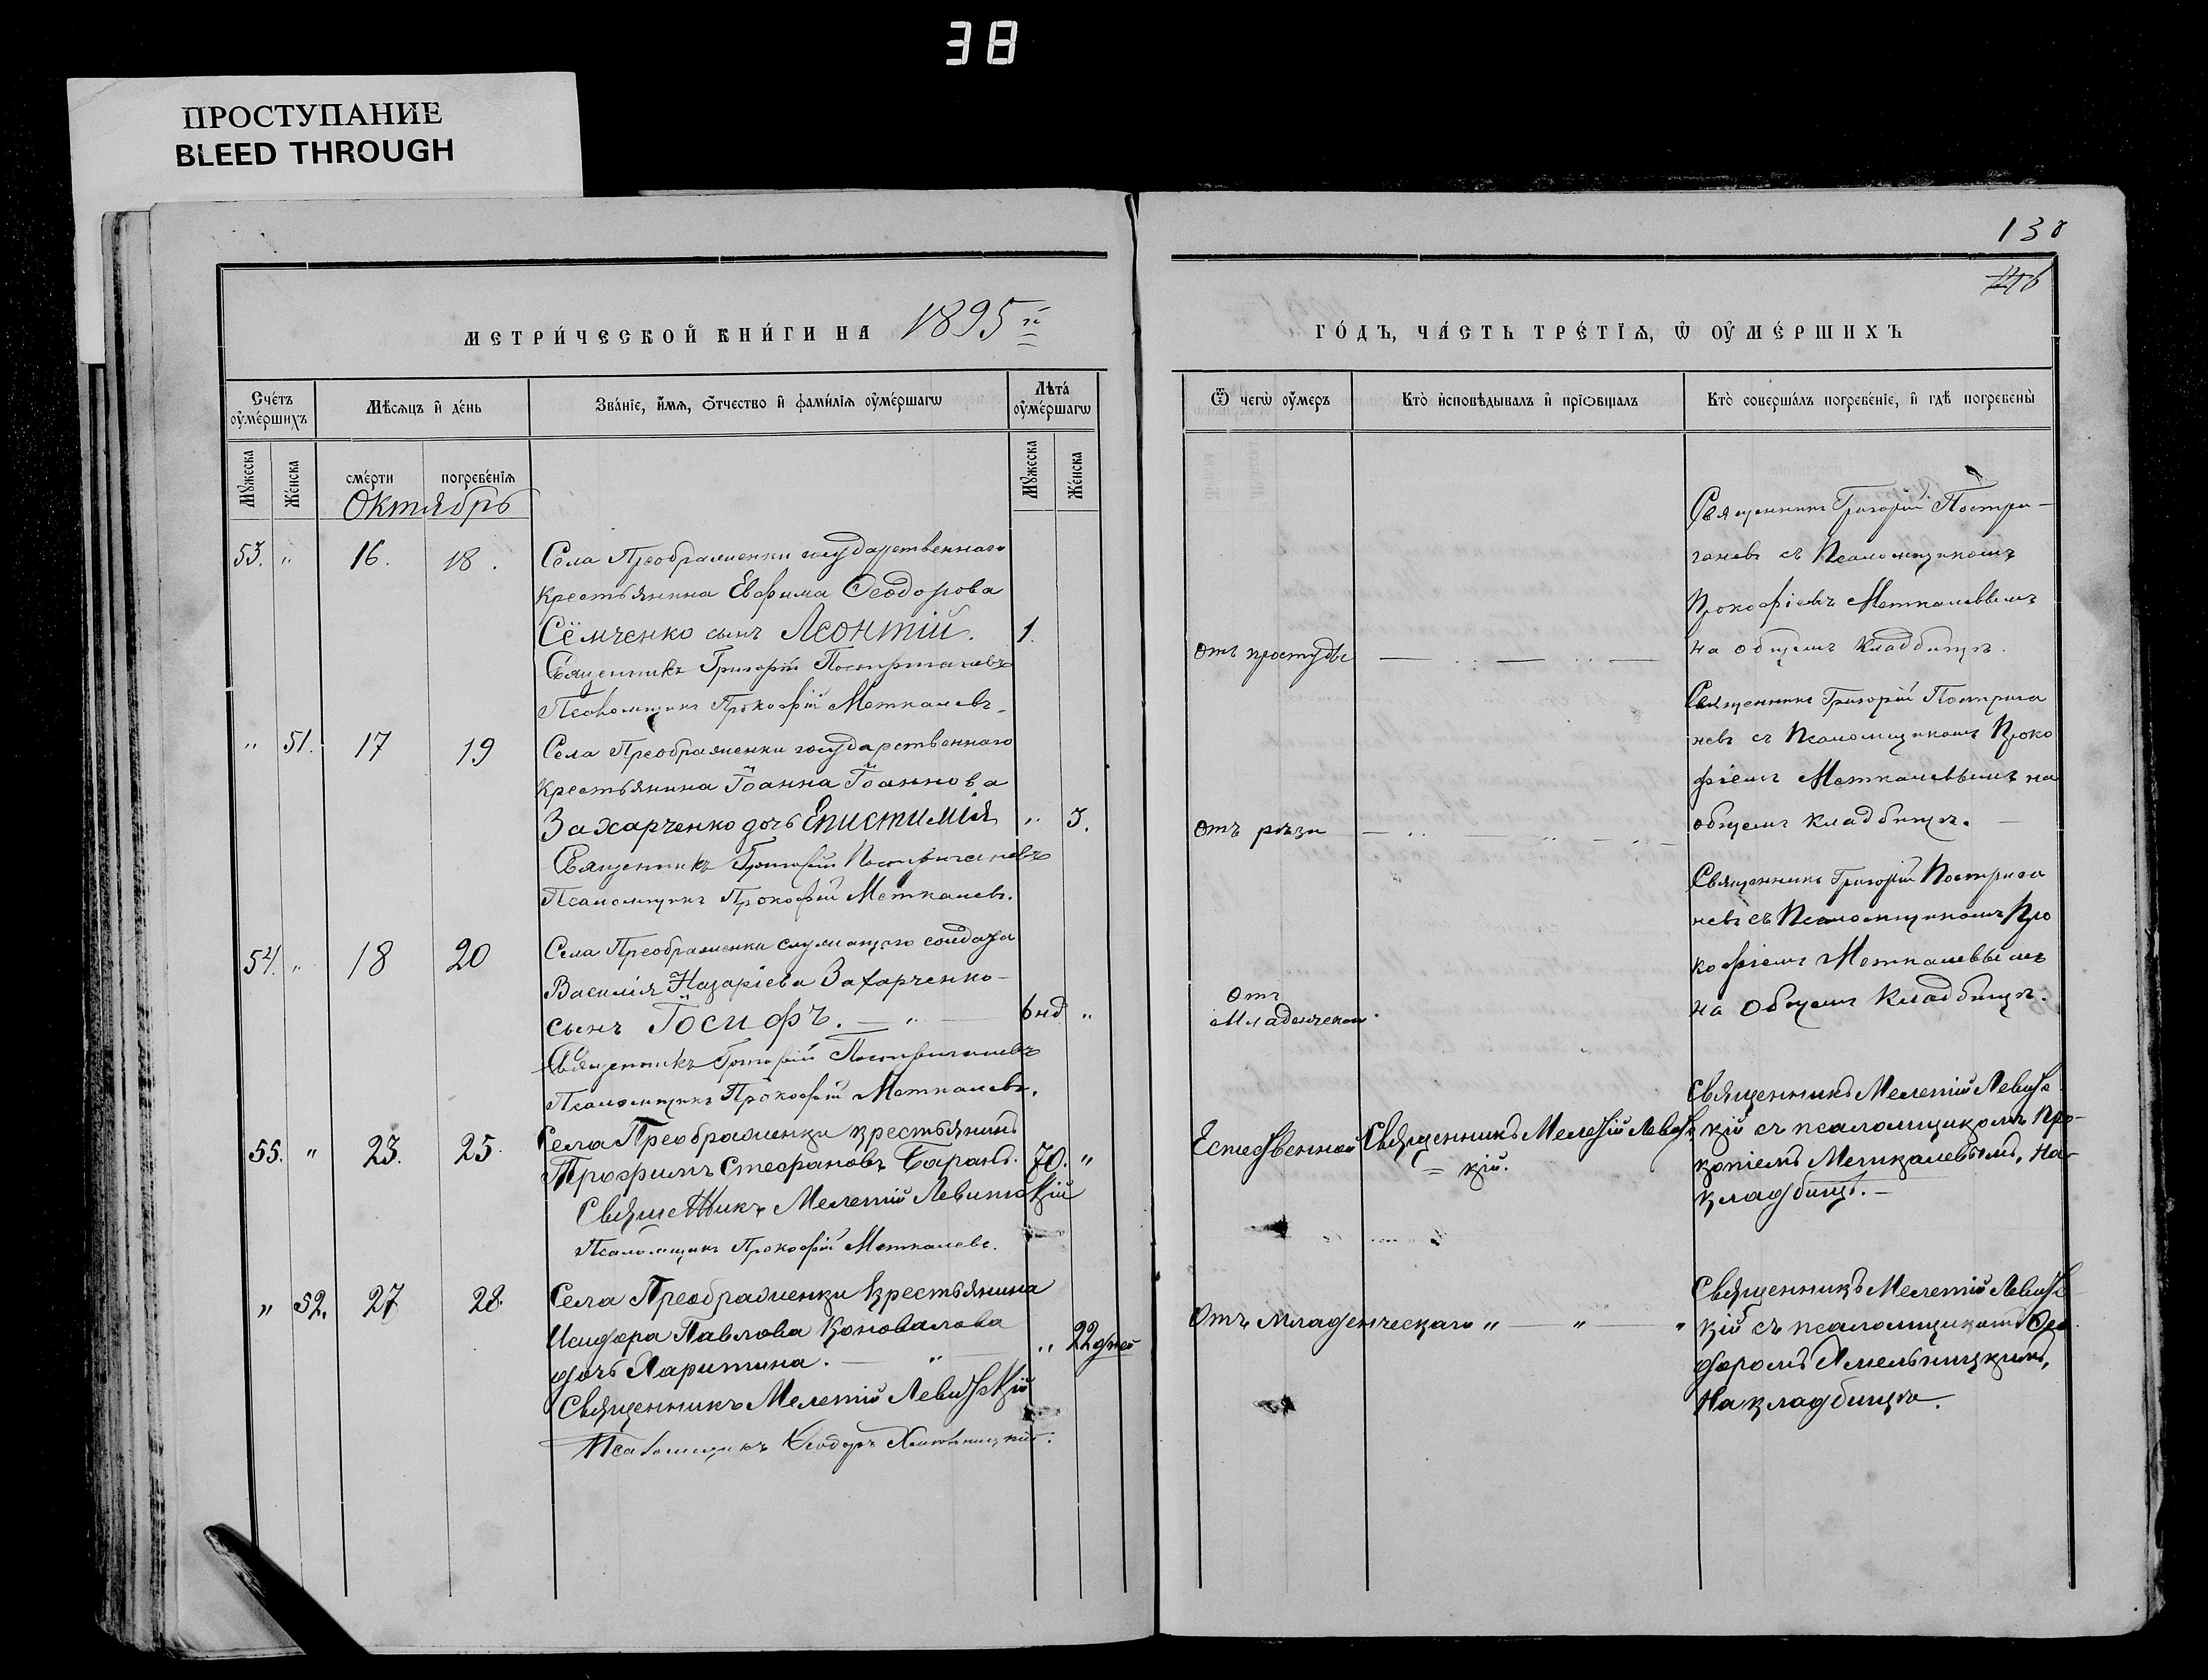 38
ПРОСТУПАНИЕ
BLEED THROUGH
138
146
МЕТРИ́ЧЕСКОЙ КНИ́ГИ НА 1895й
ГО́ДЪ, ЧА́СТЬ ТРЕ́ТІѦ, Ѡ҆ ОУ҆МЕ́РШИХЪ
Сче́тъ оу҆ме́ршихъ
Мѣ́сѧцъ и҆ де́нь
Зва́нїе, и҆́мѧ, ѻ҆́тчество и҆ фами́лїѧ оу҆ме́ршагѡ
Лѣта̀ оу҆ме́ршагѡ
Ѿ чегѡ̀ оу҆́меръ
Кто̀ и҆сповѣ́дывалъ и҆ прїѡбща́лъ
Кто̀ соверша́лъ погребе́нїе, и҆ гдѣ̀ погребены̀
Мꙋ́жеска
Же́нска
сме́рти
погребе́нїѧ
Мꙋ́жеска
Же́нска
Октябрь
53. " 16. 18.
Села Преображенки государственнаго
крестьянина Евфима Ѳеодорова
Сёмченко сынъ Леонтій. 1.
Священникъ Григорій Постригачевъ
Псаломщикъ Прокофій Меткалевъ.
отъ простуды
Священникъ Григорій Постри-
ганевъ съ Псаломщикомъ
Прокофіемъ Меткалевымъ
на общемъ кладбищѣ.
" 51. 17 19
Села Преображенки государственнаго
крестьянина Іоанна Іоаннова
Захарченко дочь Епистимія " 3.
Священникъ Григорій Постриганевъ
Псаломщикъ Прокофій Меткалевъ.
отъ рѣзи
Священникъ Григорій Постига
невъ съ Псаломщикомъ Проко
фіемъ Меткалевымъ на
общемъ кладбищѣ.
54. " 18 20
Села Преображенки служащаго солдата
Василія Назаріева Захарченко-
сынъ Іосифъ. — " — 6 нд "
Священникъ Григорій Постриганевъ
Псаломщикъ Прокофій Меткалевъ.
Отъ
Младенческой.
Священникъ Григорій Постига
невъ съ Псаломщикомъ Про
кофіемъ Меткалевымъ
на общемъ кладбищѣ.
55. " 23. 25.
Села Преображенки крестьянинъ
Трофимъ Стефановъ Баранъ. 70. "
Священникъ Мелетій Левитскій
Псаломщикъ Прокофій Меткалевъ.
Естественной
Священникъ Мелетій Левитс
= кій.
Священникъ Мелетій Левитс
кій съ псаломщикомъ Про-
копіемъ Меткалевымъ, на
кладбищѣ.—
" 52. 27 28.
Села Преображенки Крестьянина
Исидора Павлова Коновалова
дочь Харитина. — " — " 22 дней
Священникъ Мелетій Левитскій
Псаломщикъ Ѳеодоръ
Отъ младенческаго " — " — "
Священникъ Мелетій Левитс
кій съ псаломщикомъ Ѳео
доромъ Хмельницкимъ,
на кладбищѣ.